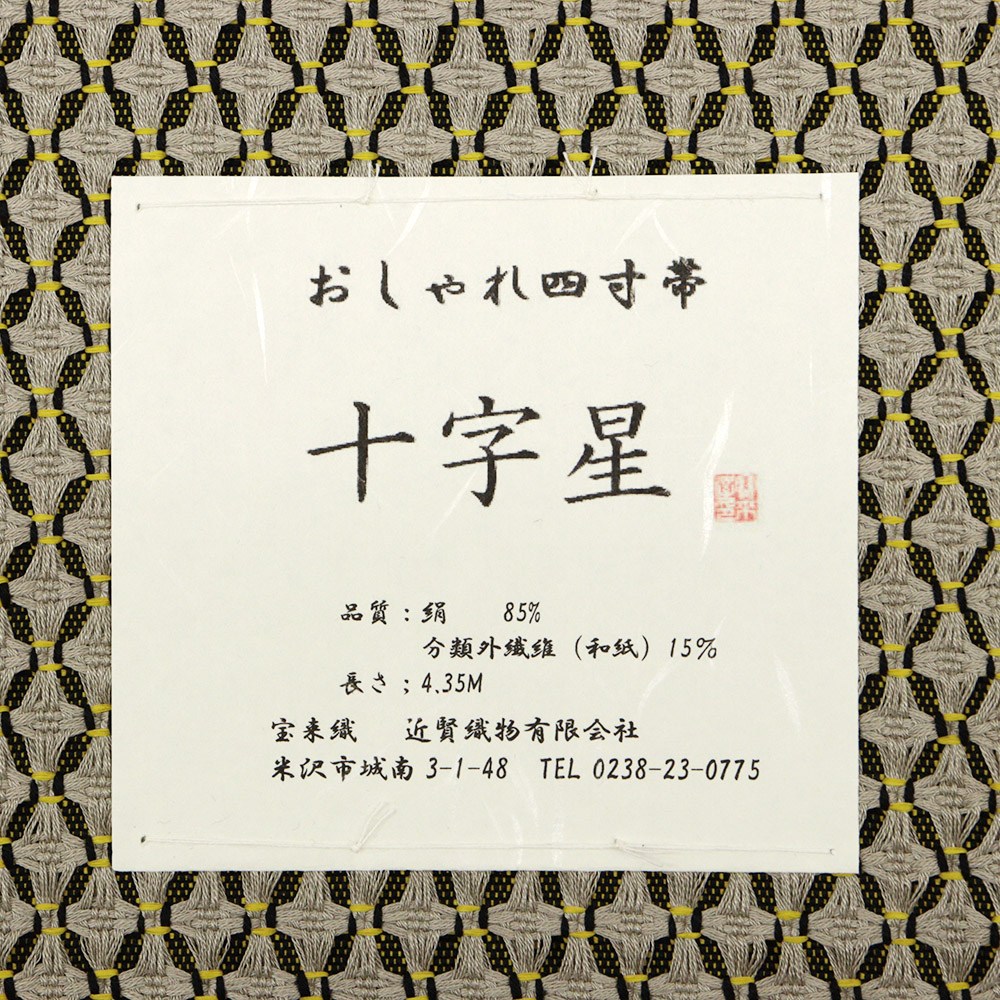 おしゃれ四寸帯
十字星
品質：絹　85%
分類外繊維（和紙）15%
長さ；4.35M
宝来織　近賢織物有限会社
米沢市城南 3-1-48　TEL 0238-23-0775